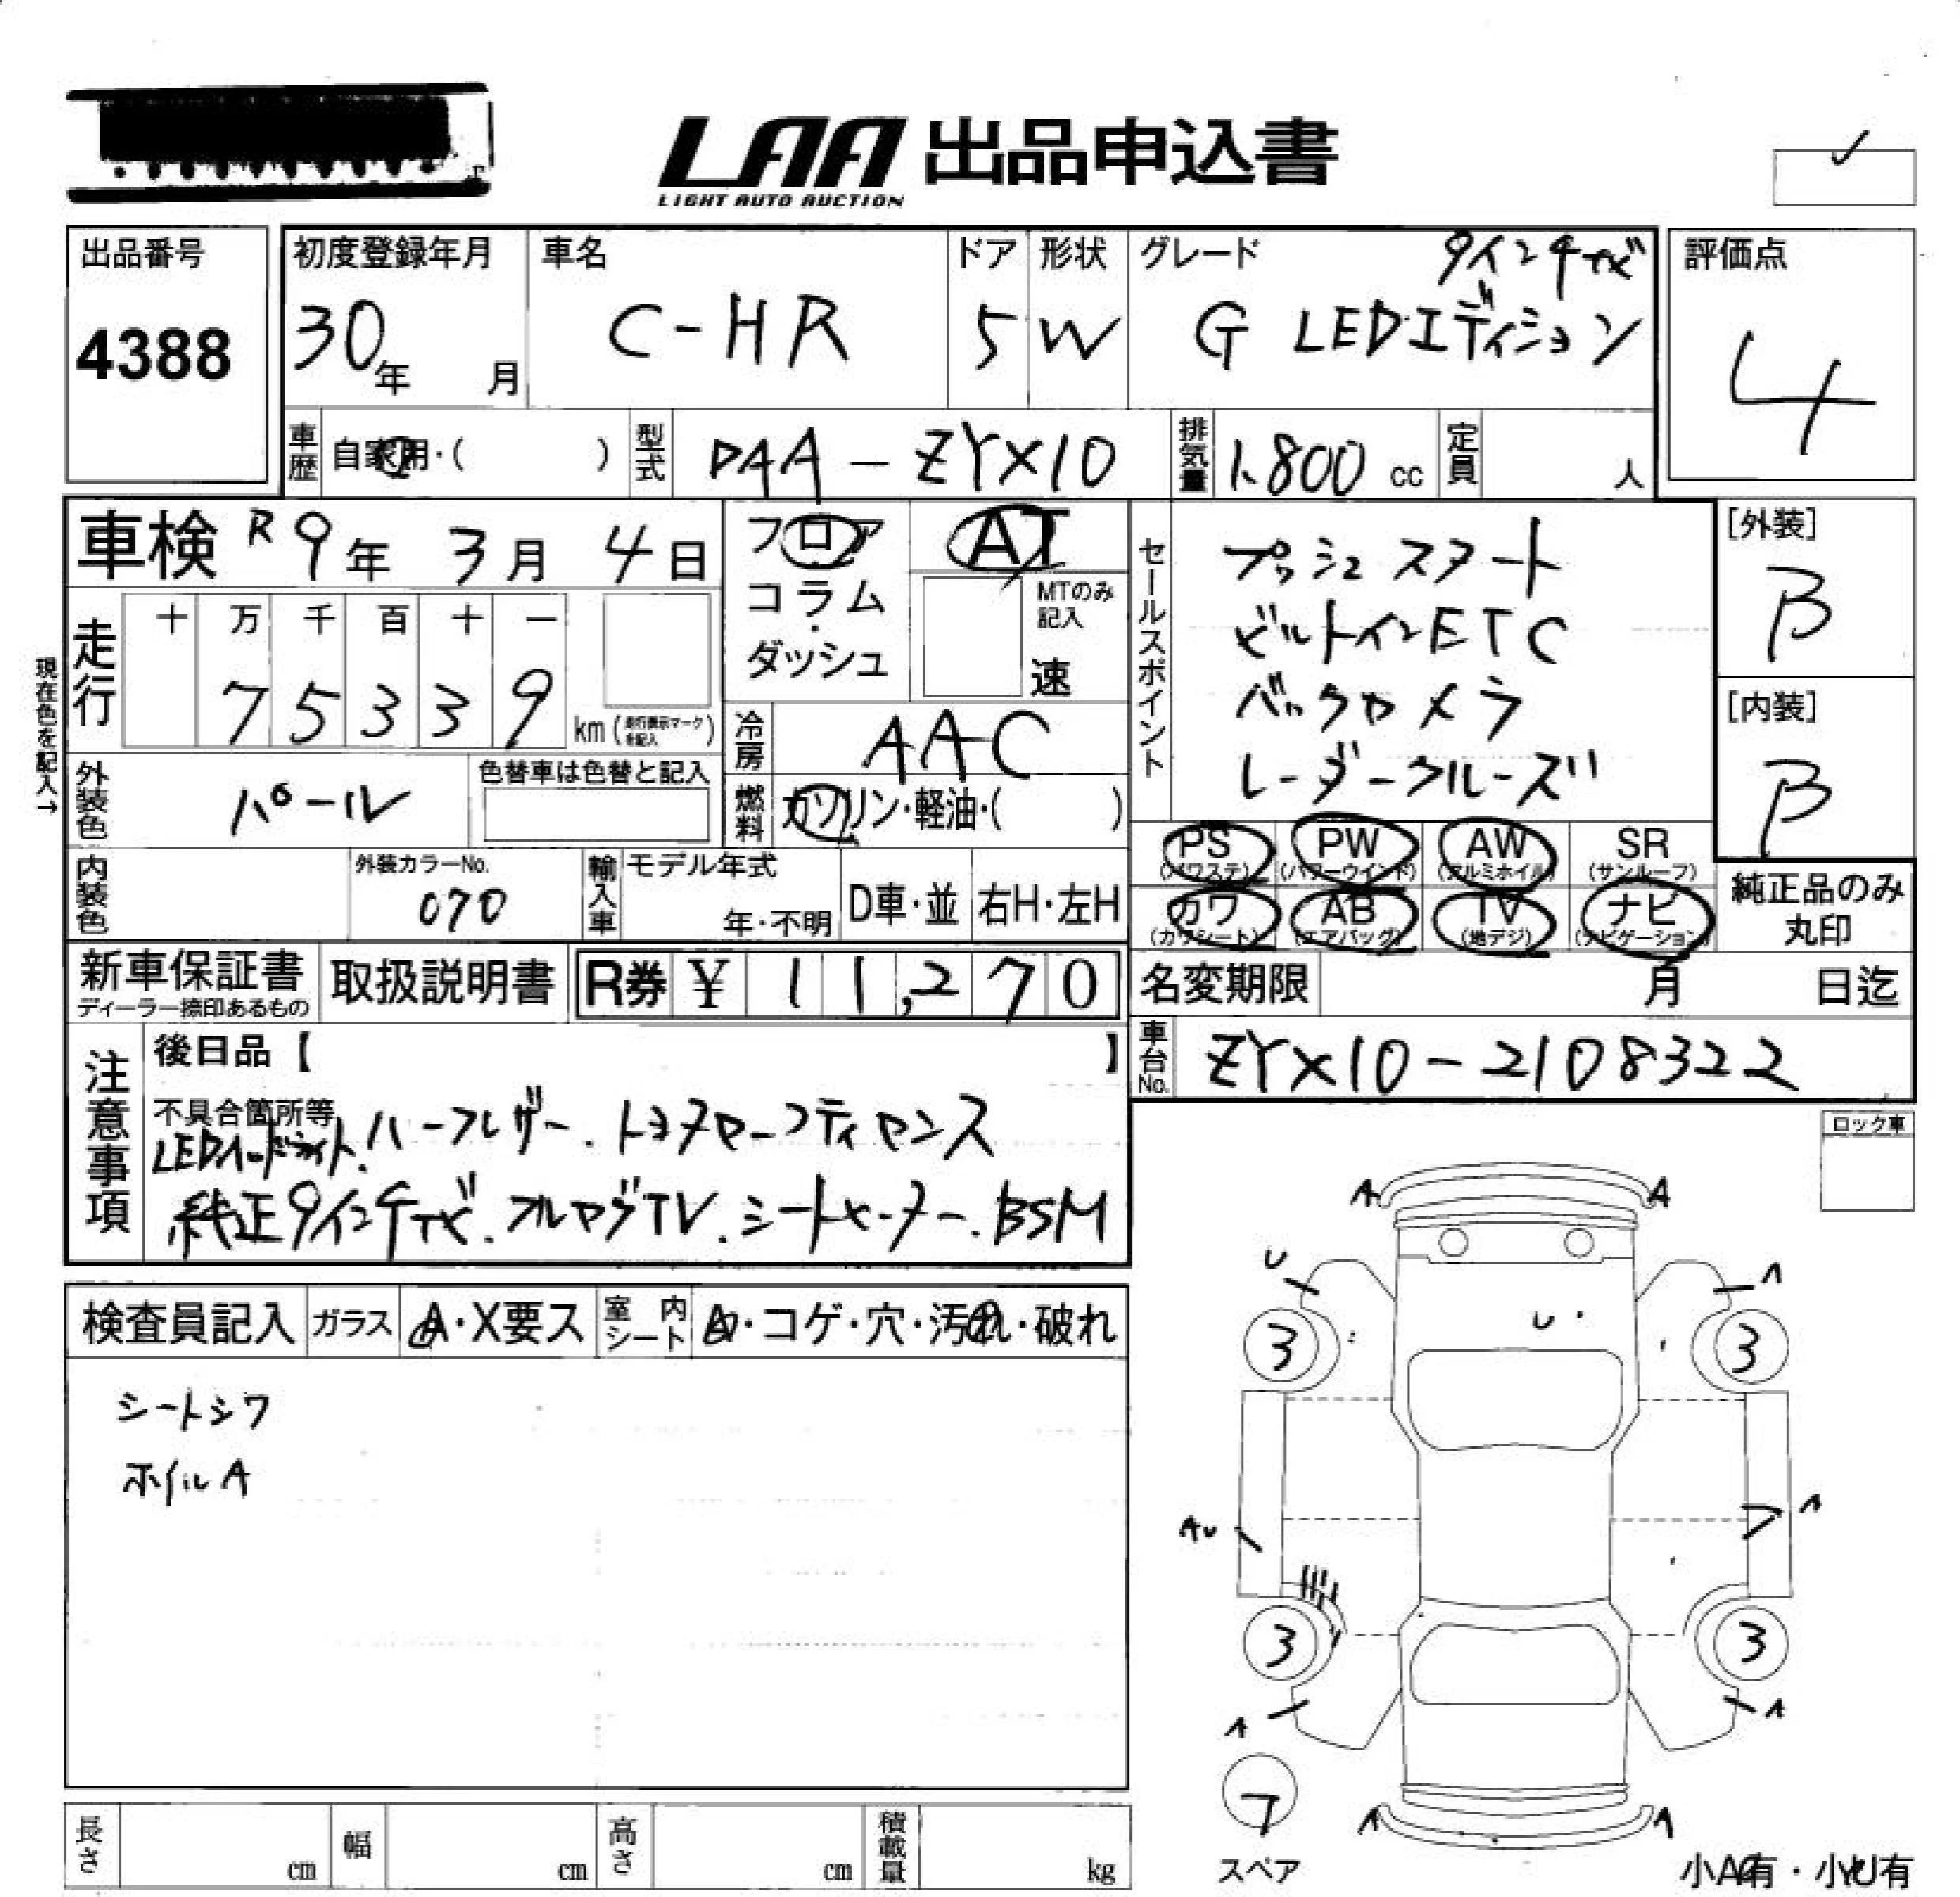 LAA 出品申込書
LIGHT AUTO AUCTION
出品番号
4388
初度登録年月
30年 月
車名
C-HR
ドア
5
形状
W
グレード
9インチナビ
G LEDエディション
評価点
4
車歴 自家用・( )
型式 DAA-ZYX10
排気量 1,800 cc
定員 人
車検 R9年 3月 4日
フロア
コラム
ダッシュ
AT
MTのみ
記入
速
セールスポイント
プッシュスタート
ビルトインETC
バックカメラ
レーダークルーズ
[外装]
B
[内装]
B
現在色を記入→
走行
十 万 千 百 十 一
7 5 3 3 9
km (走行表示マークを記入)
冷房 AAC
燃料 ガソリン・軽油・( )
外装色 パール
色替車は色替と記入
内装色
外装カラーNo.
070
輸入車
モデル年式
年・不明
D車・並
右H・左H
PS (パワステ)
PW (パワーウインド)
AW (アルミホイル)
SR (サンルーフ)
カワ (カワシート)
AB (エアバッグ)
TV (地デジ)
ナビ (ナビゲーション)
純正品のみ
丸印
新車保証書
ディーラー捺印あるもの
取扱説明書
R券 ¥ 11,270
名変期限 月 日迄
車台No. ZYX10-2108322
注意事項
後日品【 】
不具合箇所等
LEDヘッドライト.ハーフレザー.トヨタセーフティセンス
純正9インチナビ.フルセグTV.シートヒーター.BSM
ロック車
検査員記入
ガラス A・X要ス
室内シート A・コゲ・穴・汚れ・破れ
シートシワ
ホイルA
A A
U A
U
3 3
AU A
3 3
A A
フ
スペア
A A
小A有・小U有
長さ cm
幅 cm
高さ cm
積載量 kg